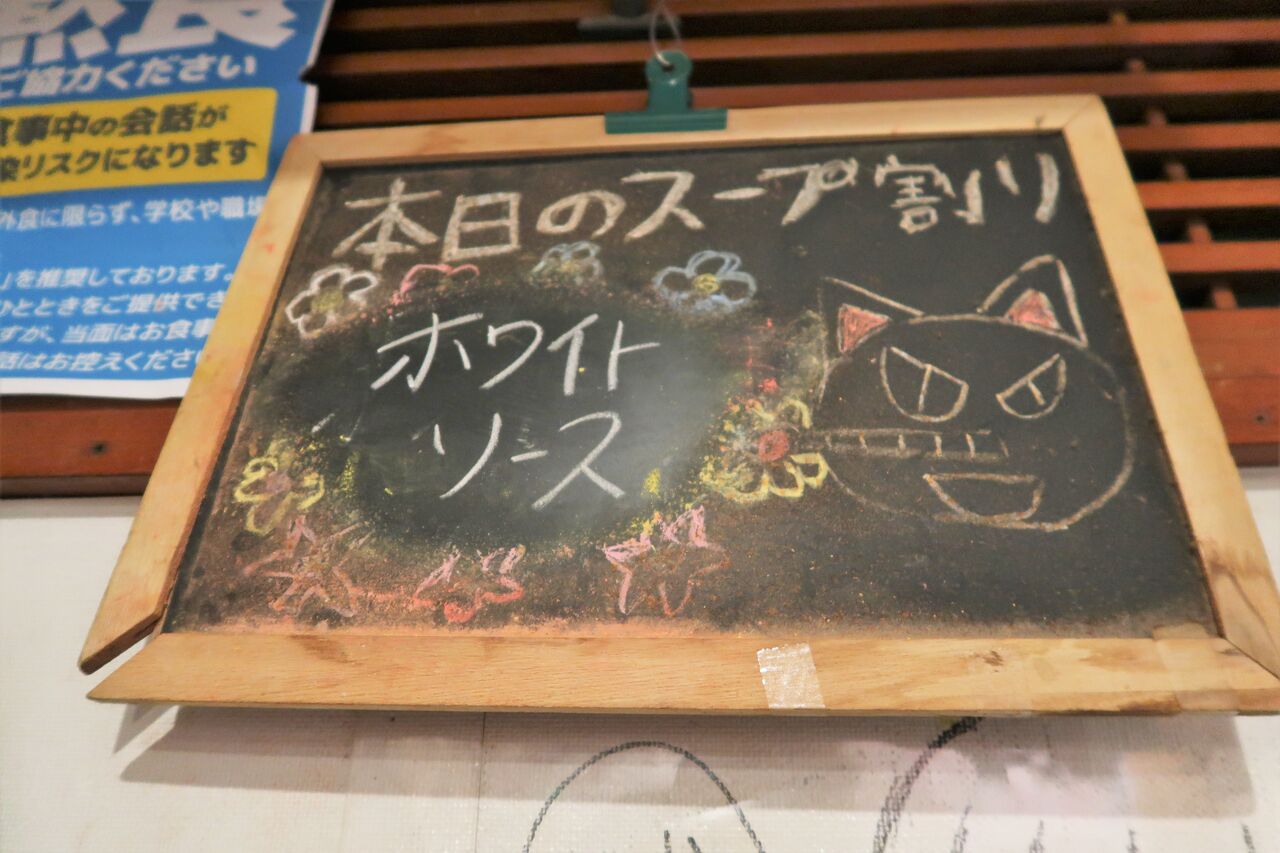 ご協力ください
食事中の会話が
染リスクになります
外食に限らず、学校や職場
」を推奨しております。
ひとときをご提供でき
すが、当面はお食事
話はお控えくださ
本日のスープ割り
ホワイト
ソース